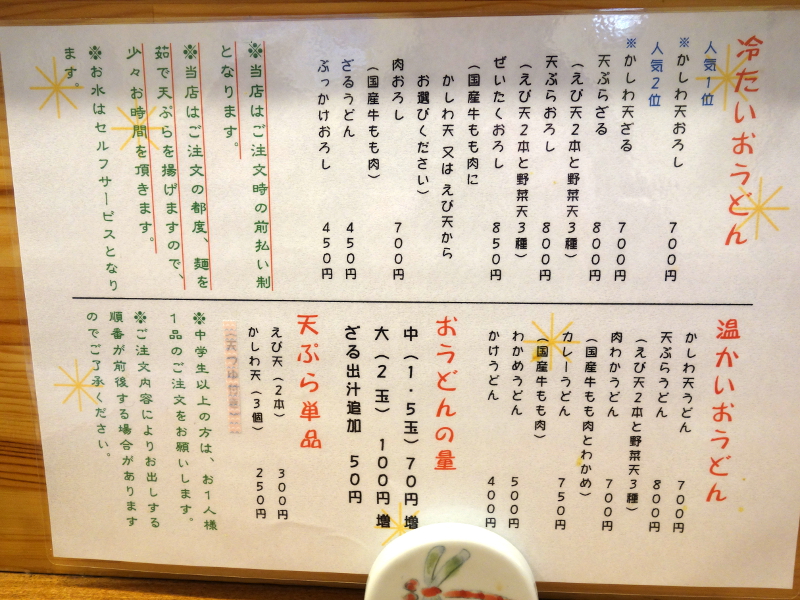 冷たいおうどん
人気1位
※かしわ天おろし 700円
人気2位
※かしわ天ざる 700円
天ぷらざる 800円
(えび天2本と野菜天3種)
天ぷらおろし 800円
(えび天2本と野菜天3種)
ぜいたくおろし 850円
(国産牛もも肉に
かしわ天 又は えび天から
お選びください)
肉おろし 700円
(国産牛もも肉)
ざるうどん 450円
ぶっかけおろし 450円
※当店はご注文時の前払い制
となります。
※当店はご注文の都度、麺を
茹で天ぷらを揚げますので、
少々お時間を頂きます。
※お水はセルフサービスとなり
ます。
温かいおうどん
かしわ天うどん 700円
天ぷらうどん 800円
(えび天2本と野菜天3種)
肉わかうどん 700円
(国産牛もも肉とわかめ)
カレーうどん 750円
(国産牛もも肉)
わかめうどん 500円
かけうどん 400円
おうどんの量
中(1.5玉)70円増
大(2玉) 100円増
ざる出汁追加 50円
天ぷら単品
えび天(2本) 300円
かしわ天(3個) 250円
※中学生以上の方は、お1人様
1品のご注文をお願いします。
※ご注文内容によりお出しする
順番が前後する場合があります
のでご了承ください。